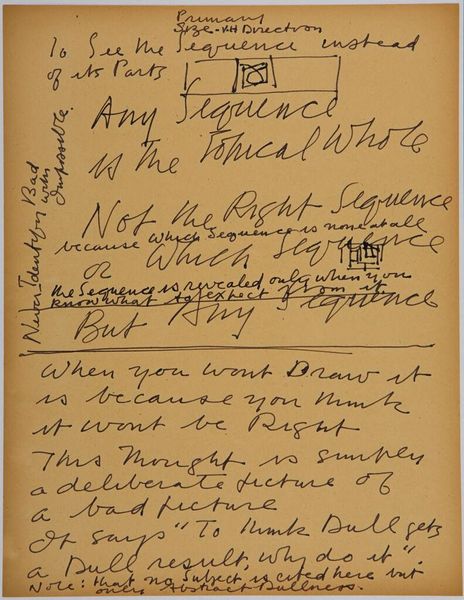 Primary
Size - VH Direction
To See the Sequence instead
of its Parts
Any Sequence
is the Topical Whole
Not the Right Sequence
because which Sequence is none at all
or Which Sequence
the Sequence is revealed only when you
know what to expect from it.
But Any Sequence
Never Identify Bad
with
Impossible.
When you wont Draw it
is because you think
it wont be Right
This Thought is simply
a deliberate picture of
a bad picture
It says "To think Dull gets
a Dull result, why do it".
Note: that no Subject is cited here but
only Abstract Dullness.